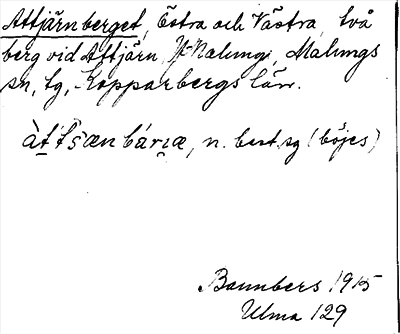 Attjärnberget, Östra och Västra, två
berg vid Attjärn, Y. Malung, Malungs
sn, tg, Kopparbergs län.
àt́t́šænbárıæ, n. best. sg (böjes)
Bannbers 1915
Ulma 129